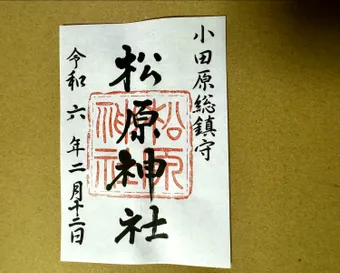 小田原総鎮守
松原神社
松原神社
令和六年二月十二日